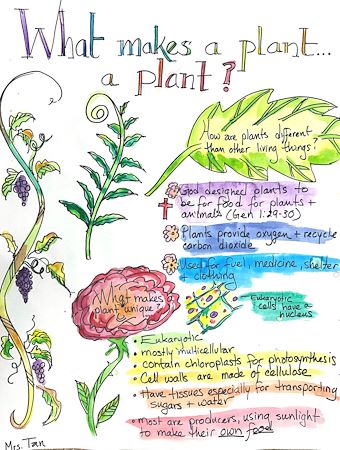 What makes a plant...
a plant?
How are plants different
than other living things?
God designed plants to
be for food for plants +
animals (Gen 1:29-30)
Plants provide oxygen + recycle
carbon dioxide
Used for fuel, medicine, shelter
+ clothing
What makes a
plant unique?
Eukaryotic
cells have a
nucleus
Eukaryotic
• mostly multicellular
• contain chloroplasts for photosynthesis
• Cell walls are made of cellulose
• Have tissues especially for transporting
sugars + water
• most are producers, using sunlight
to make their own food
Mrs. Tan